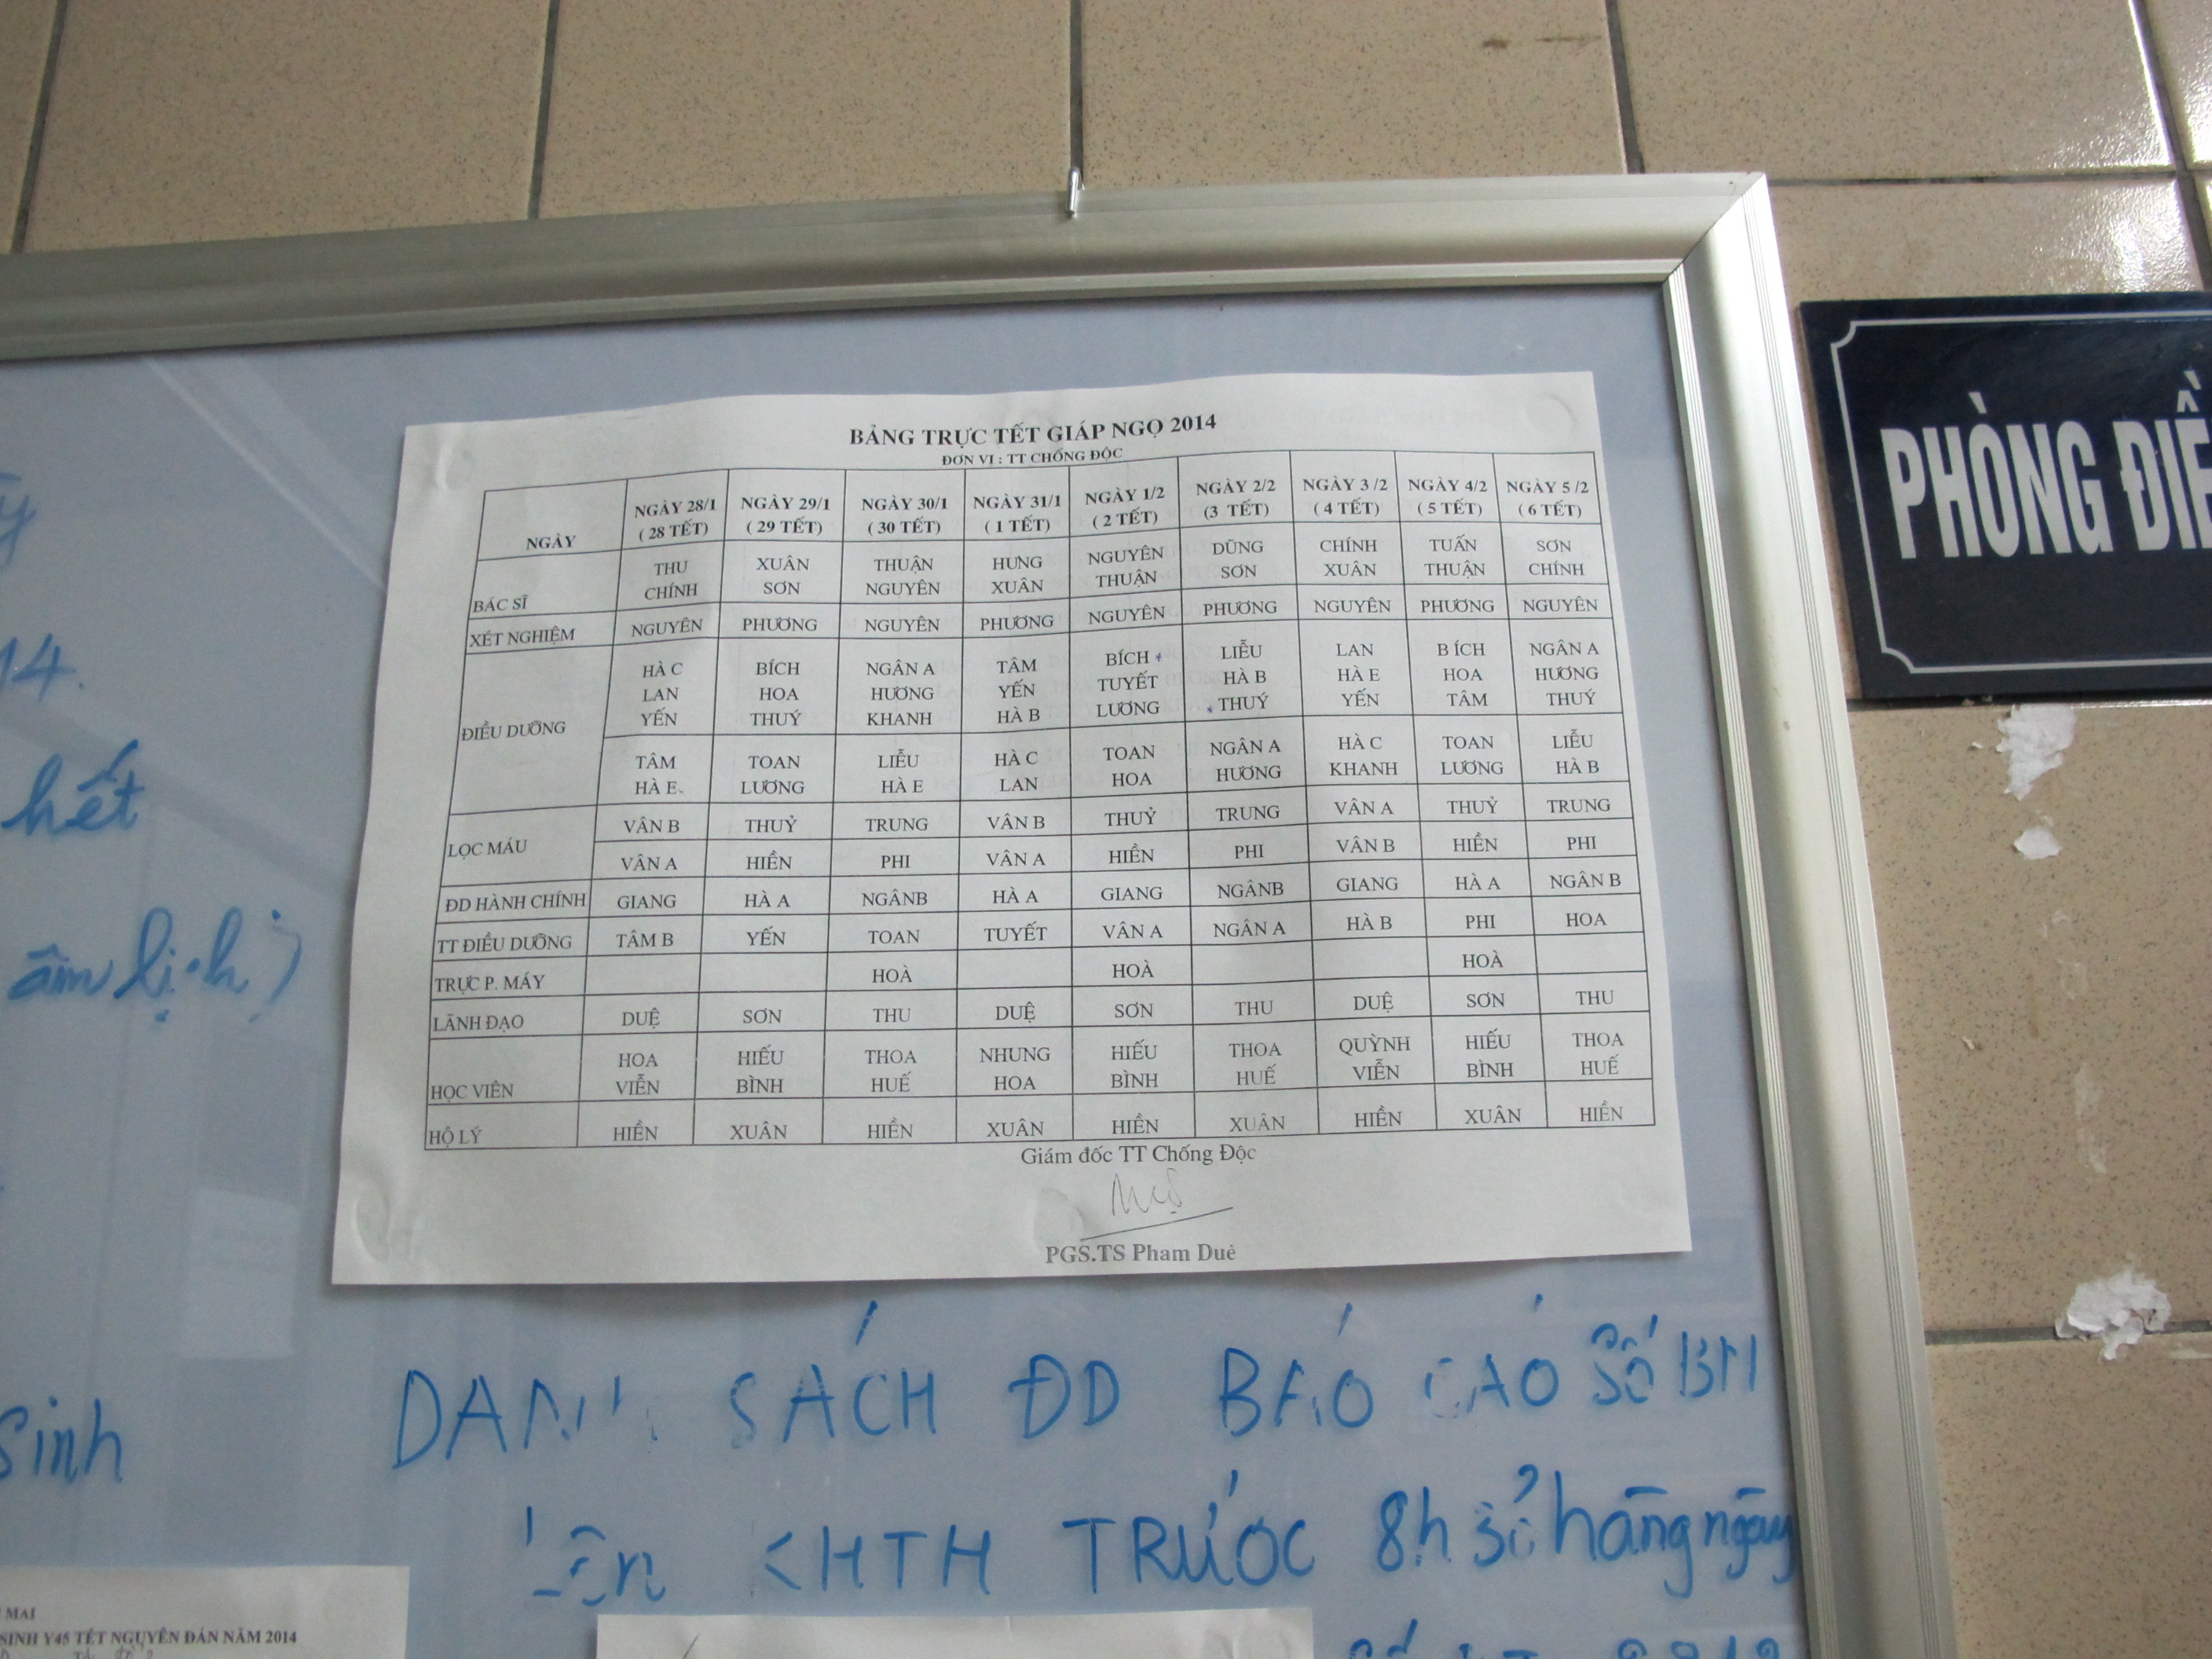 BẢNG TRỰC TẾT GIÁP NGỌ 2014
ĐƠN VI : TT CHỐNG ĐỘC
NGÀY NGÀY 28/1 NGÀY 29/1 NGÀY 30/1 NGÀY 31/1 NGÀY 1/2 NGÀY 2/2 NGÀY 3 /2 NGÀY 4/2 NGÀY 5 /2
( 28 TẾT) ( 29 TẾT) ( 30 TẾT) ( 1 TẾT) ( 2 TẾT) (3 TẾT) ( 4 TẾT) ( 5 TẾT) ( 6 TẾT)
BÁC SĨ THU XUÂN THUẬN HƯNG NGUYÊN DŨNG CHÍNH TUẤN SƠN
CHÍNH SƠN NGUYÊN XUÂN THUẬN SƠN XUÂN THUẬN CHÍNH
XÉT NGHIỆM NGUYÊN PHƯƠNG NGUYÊN PHƯƠNG NGUYÊN PHƯƠNG NGUYÊN PHƯƠNG NGUYÊN
ĐIỀU DƯỠNG HÀ C BÍCH NGÂN A TÂM BÍCH LIỄU LAN B ÍCH NGÂN A
LAN HOA HƯƠNG YẾN TUYẾT HÀ B HÀ E HOA HƯƠNG
YẾN THUÝ KHANH HÀ B LƯƠNG THUÝ YẾN TÂM THUÝ
TÂM TOAN LIỄU HÀ C TOAN NGÂN A HÀ C TOAN LIỄU
HÀ E LƯƠNG HÀ E LAN HOA HƯƠNG KHANH LƯƠNG HÀ B
LỌC MÁU VÂN B THUỶ TRUNG VÂN B THUỶ TRUNG VÂN A THUỶ TRUNG
VÂN A HIỀN PHI VÂN A HIỀN PHI VÂN B HIỀN PHI
ĐD HÀNH CHÍNH GIANG HÀ A NGÂNB HÀ A GIANG NGÂNB GIANG HÀ A NGÂN B
TT ĐIỀU DƯỠNG TÂM B YẾN TOAN TUYẾT VÂN A NGÂN A HÀ B PHI HOA
TRỰC P. MÁY HOÀ HOÀ HOÀ
LÃNH ĐẠO DUỆ SƠN THU DUỆ SƠN THU DUỆ SƠN THU
HỌC VIÊN HOA HIẾU THOA NHUNG HIẾU THOA QUỲNH HIẾU THOA
VIỄN BÌNH HUẾ HOA BÌNH HUẾ VIỄN BÌNH HUẾ
HỘ LÝ HIỀN XUÂN HIỀN XUÂN HIỀN XUÂN HIỀN XUÂN HIỀN
Giám đốc TT Chống Độc
PGS.TS Phạm Duệ
PHÒNG ĐIỀ
14.
hết
âm lịch)
sinh
SÁCH ĐD BÁO CÁO Số BN
KHTH TRƯỚC 8h hàng ngày
MAI
SINH Y45 TẾT NGUYÊN ĐÁN NĂM 2014